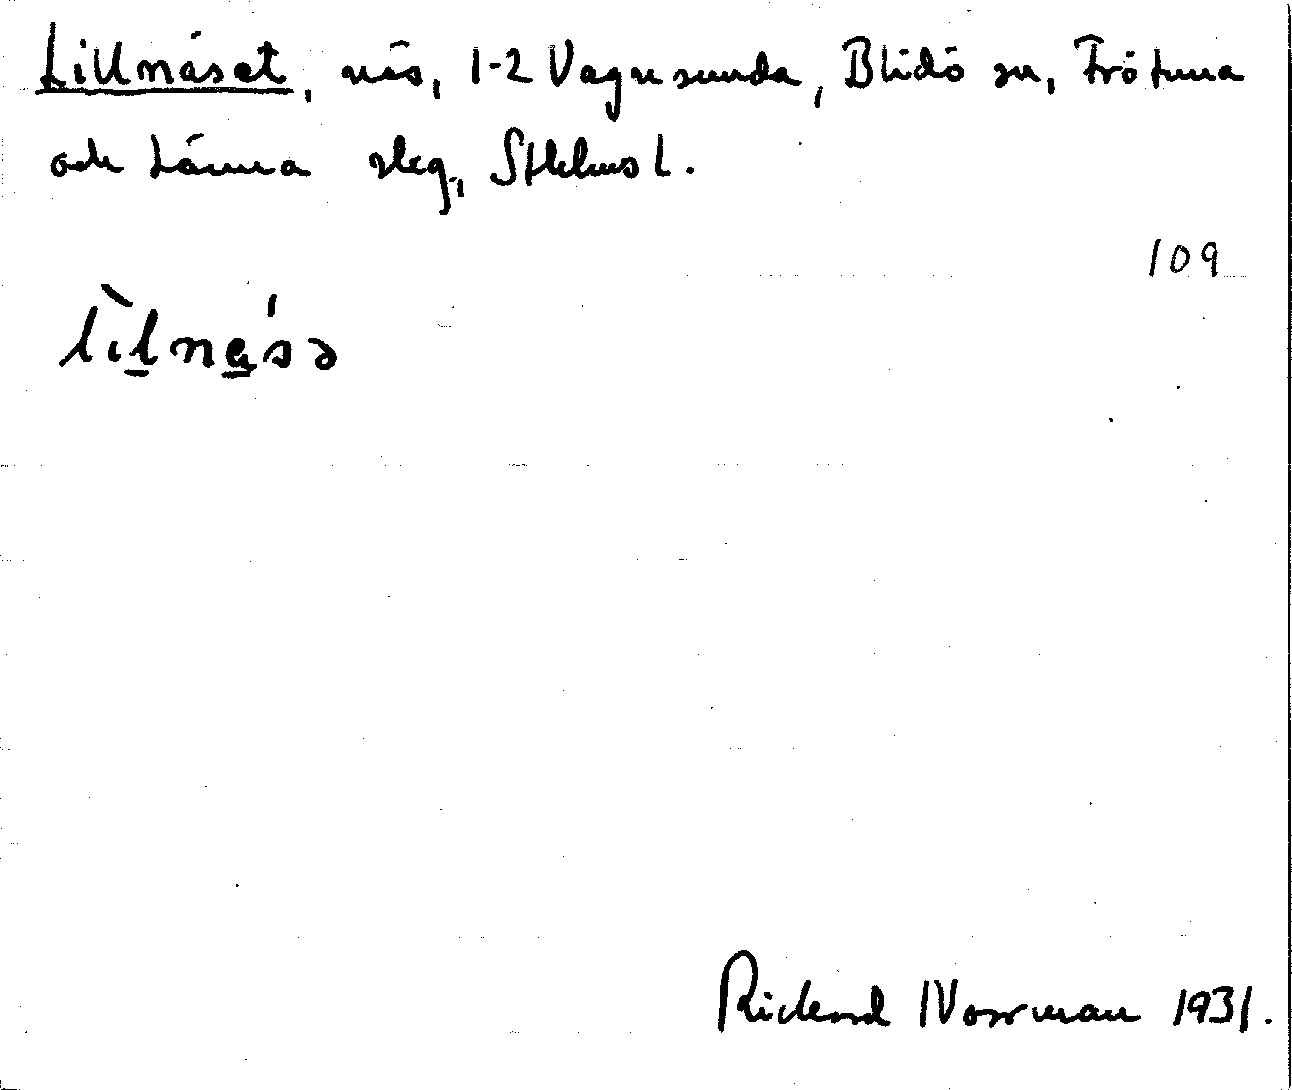 Lillnäset, näs, 1-2 Vagnsunda, Blidö sn, Frötuna
och Länna slg., Sthlms l.
109
Richard Norrman 1931.